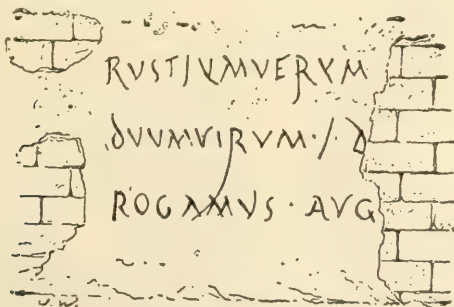 RVSTIVMVERVM
DVVMVIRVM · I D
ROGAMVS · AVG
J.W.